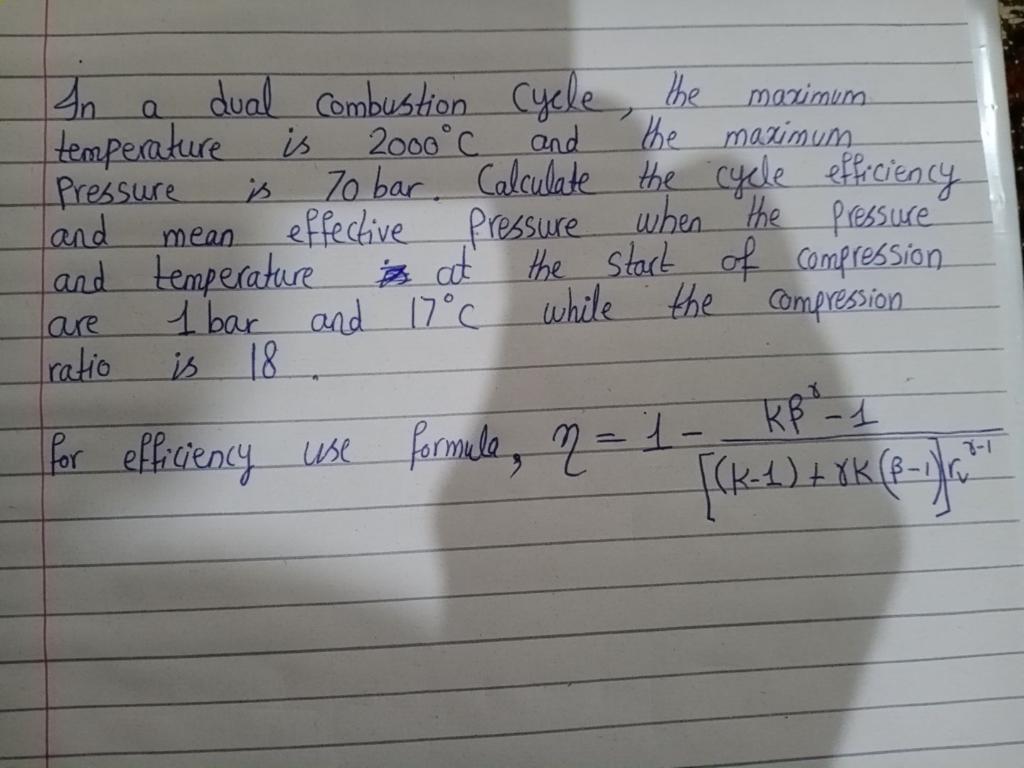 In a dual combustion cycle, the maximum
temperature is 2000°C and the maximum
pressure is 70 bar. Calculate the cycle efficiency
and mean effective pressure when the pressure
and temperature at the start of compression
are 1 bar and 17°C while the compression
ratio is 18.
for efficiency use formula, η = 1 - (kβ^γ - 1) / ([(k-1) + γk(β-1)] r_v^(γ-1))